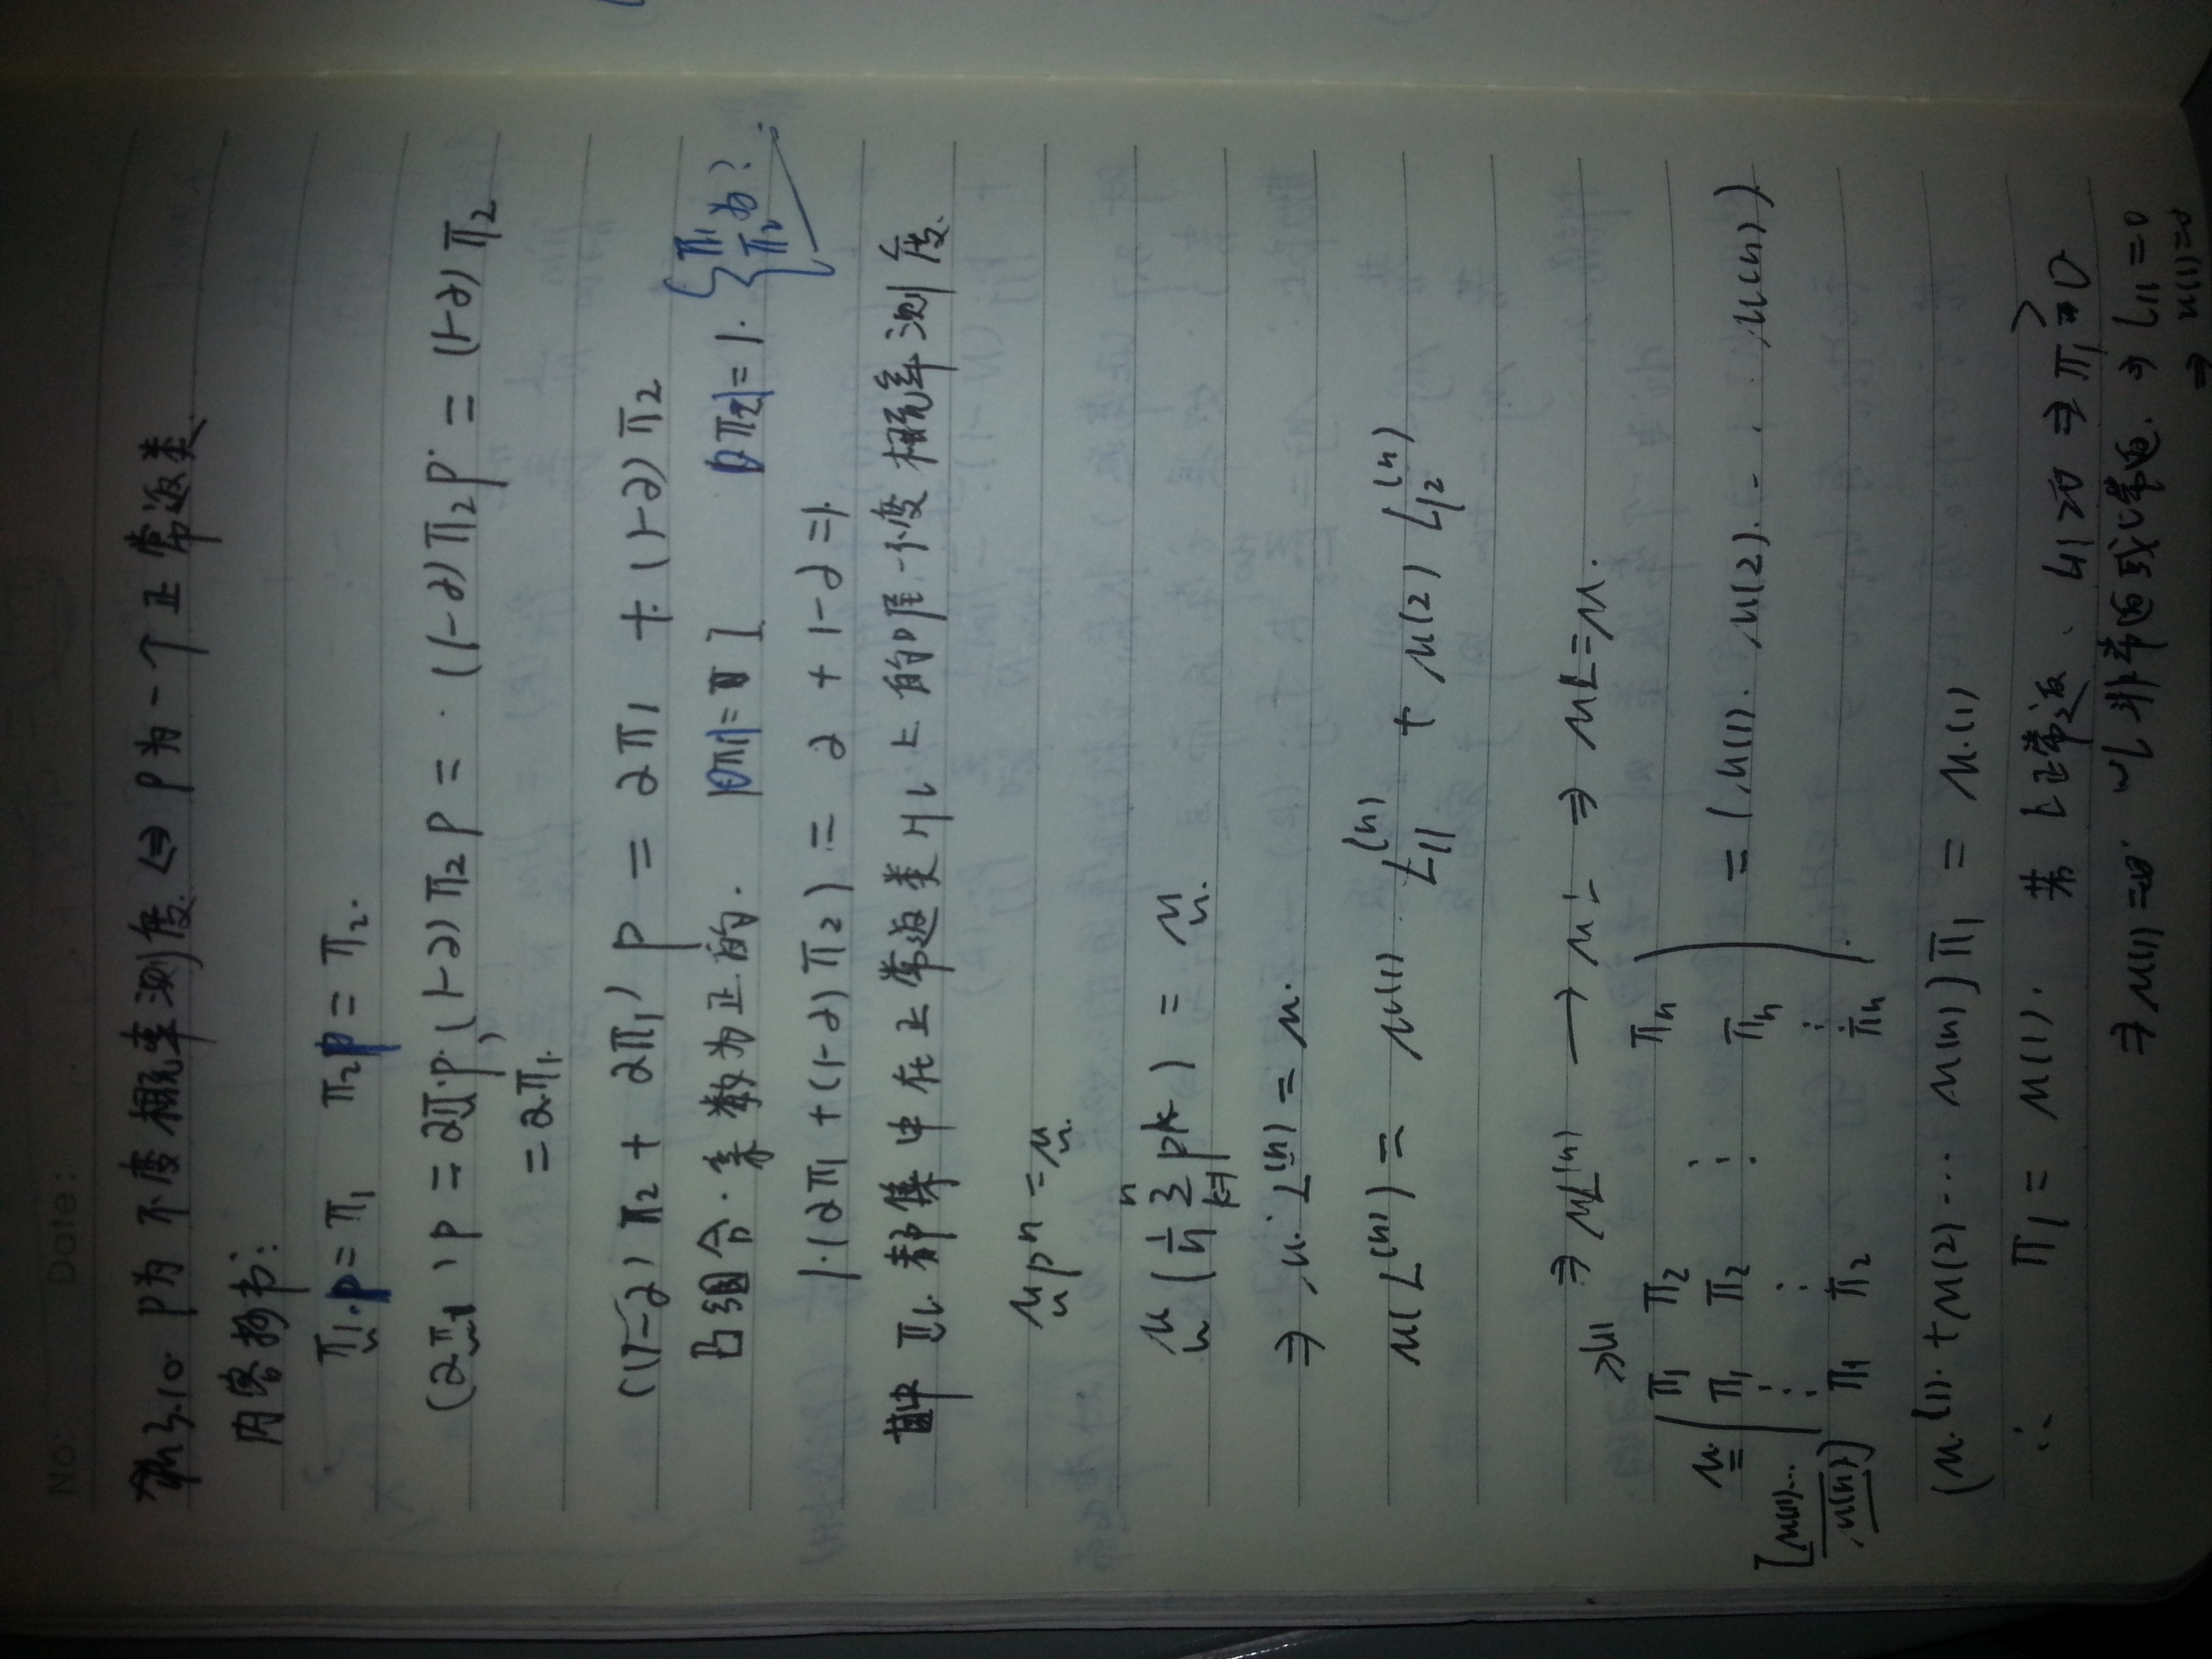 No: Date:
3.10. P为不变概率测度 ⇔ P为一个正常返类.
内容抄书:
π1·P = π1 π2P = π2.
(∂π1)P = ∂π1·P, (1-∂)π2P = ·(1-∂)π2P· = (1-∂)π2
= ∂π1.
((1-∂)π2 + ∂π1)P = ∂π1 + (1-∂)π2
凸组合·系数为正的. π1 π2 为?
1·(∂π1 + (1-∂)π2) = ∂ + 1-∂ = 1.
其中 πi 都集中在正常返类Hi上的唯一不变概率测度.
μPⁿ = μ.
μ( 1/n Σ_{k=1}^{n} P^k ) = μ.
⇒ μ· L^(n) = μ.
μ(L^(n)) = μ(1) · L11^(n) + μ(2) L12^(n)
⇒ μL^(n) → μL ⇒ μL = μ.
μ ( π1 π2 πn
π1 π2 ⋮ πn
⋮ ⋮ ⋮
π1 π2 πn ) = (μ(1). μ(2). - . . μ(n))
[μ(1)...
μ(n)]
(μ(1) + μ(2) ... μ(n))π1 = μ(1)
∴ π1 = μ(1). 若 i 正常返. L11>0 ⇒ π1>0
⇒ μ(1) = 0. 非常返或 常返. ⇒ L11 = 0
⇒ μ(1)=0